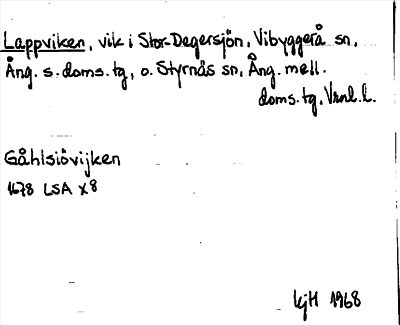 Lappviken, vik i Stor-Degersjön, Vibyggerå sn,
Ång. s. doms. tg, o. Styrnäs sn, Ång. mell.
doms. tg, Vrnl. l.
Gåhlsiövijken
1678 LSA X8
kjH 1968